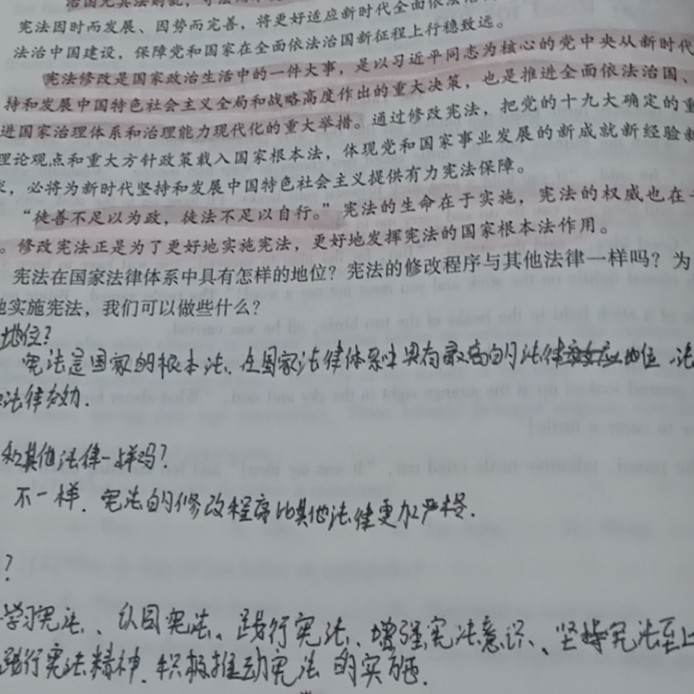 宪法因时而发展、因势而完善,将更好适应新时代全面依法
法治中国建设,保障党和国家在全面依法治国新征程上行稳致远。
宪法修改是国家政治生活中的一件大事,是以习近平同志为核心的党中央从新时代
持和发展中国特色社会主义全局和战略高度作出的重大决策,也是推进全面依法治国、
进国家治理体系和治理能力现代化的重大举措。通过修改宪法,把党的十九大确定的重
理论观点和重大方针政策载入国家根本法,体现党和国家事业发展的新成就新经验新
,必将为新时代坚持和发展中国特色社会主义提供有力宪法保障。
“徒善不足以为政,徒法不足以自行。”宪法的生命在于实施,宪法的权威也在
。修改宪法正是为了更好地实施宪法,更好地发挥宪法的国家根本法作用。
宪法在国家法律体系中具有怎样的地位?宪法的修改程序与其他法律一样吗?为
地实施宪法,我们可以做些什么?
地位?
宪法是国家的根本法、在国家法律体系中具有最高的法律地位、法
法律效力.
和其他法律一样吗?
不一样.宪法的修改程序比其他法律更加严格.
?
学习宪法、认同宪法、践行宪法、增强宪法意识、坚持宪法至上
践行宪法精神.积极推动宪法的实施.